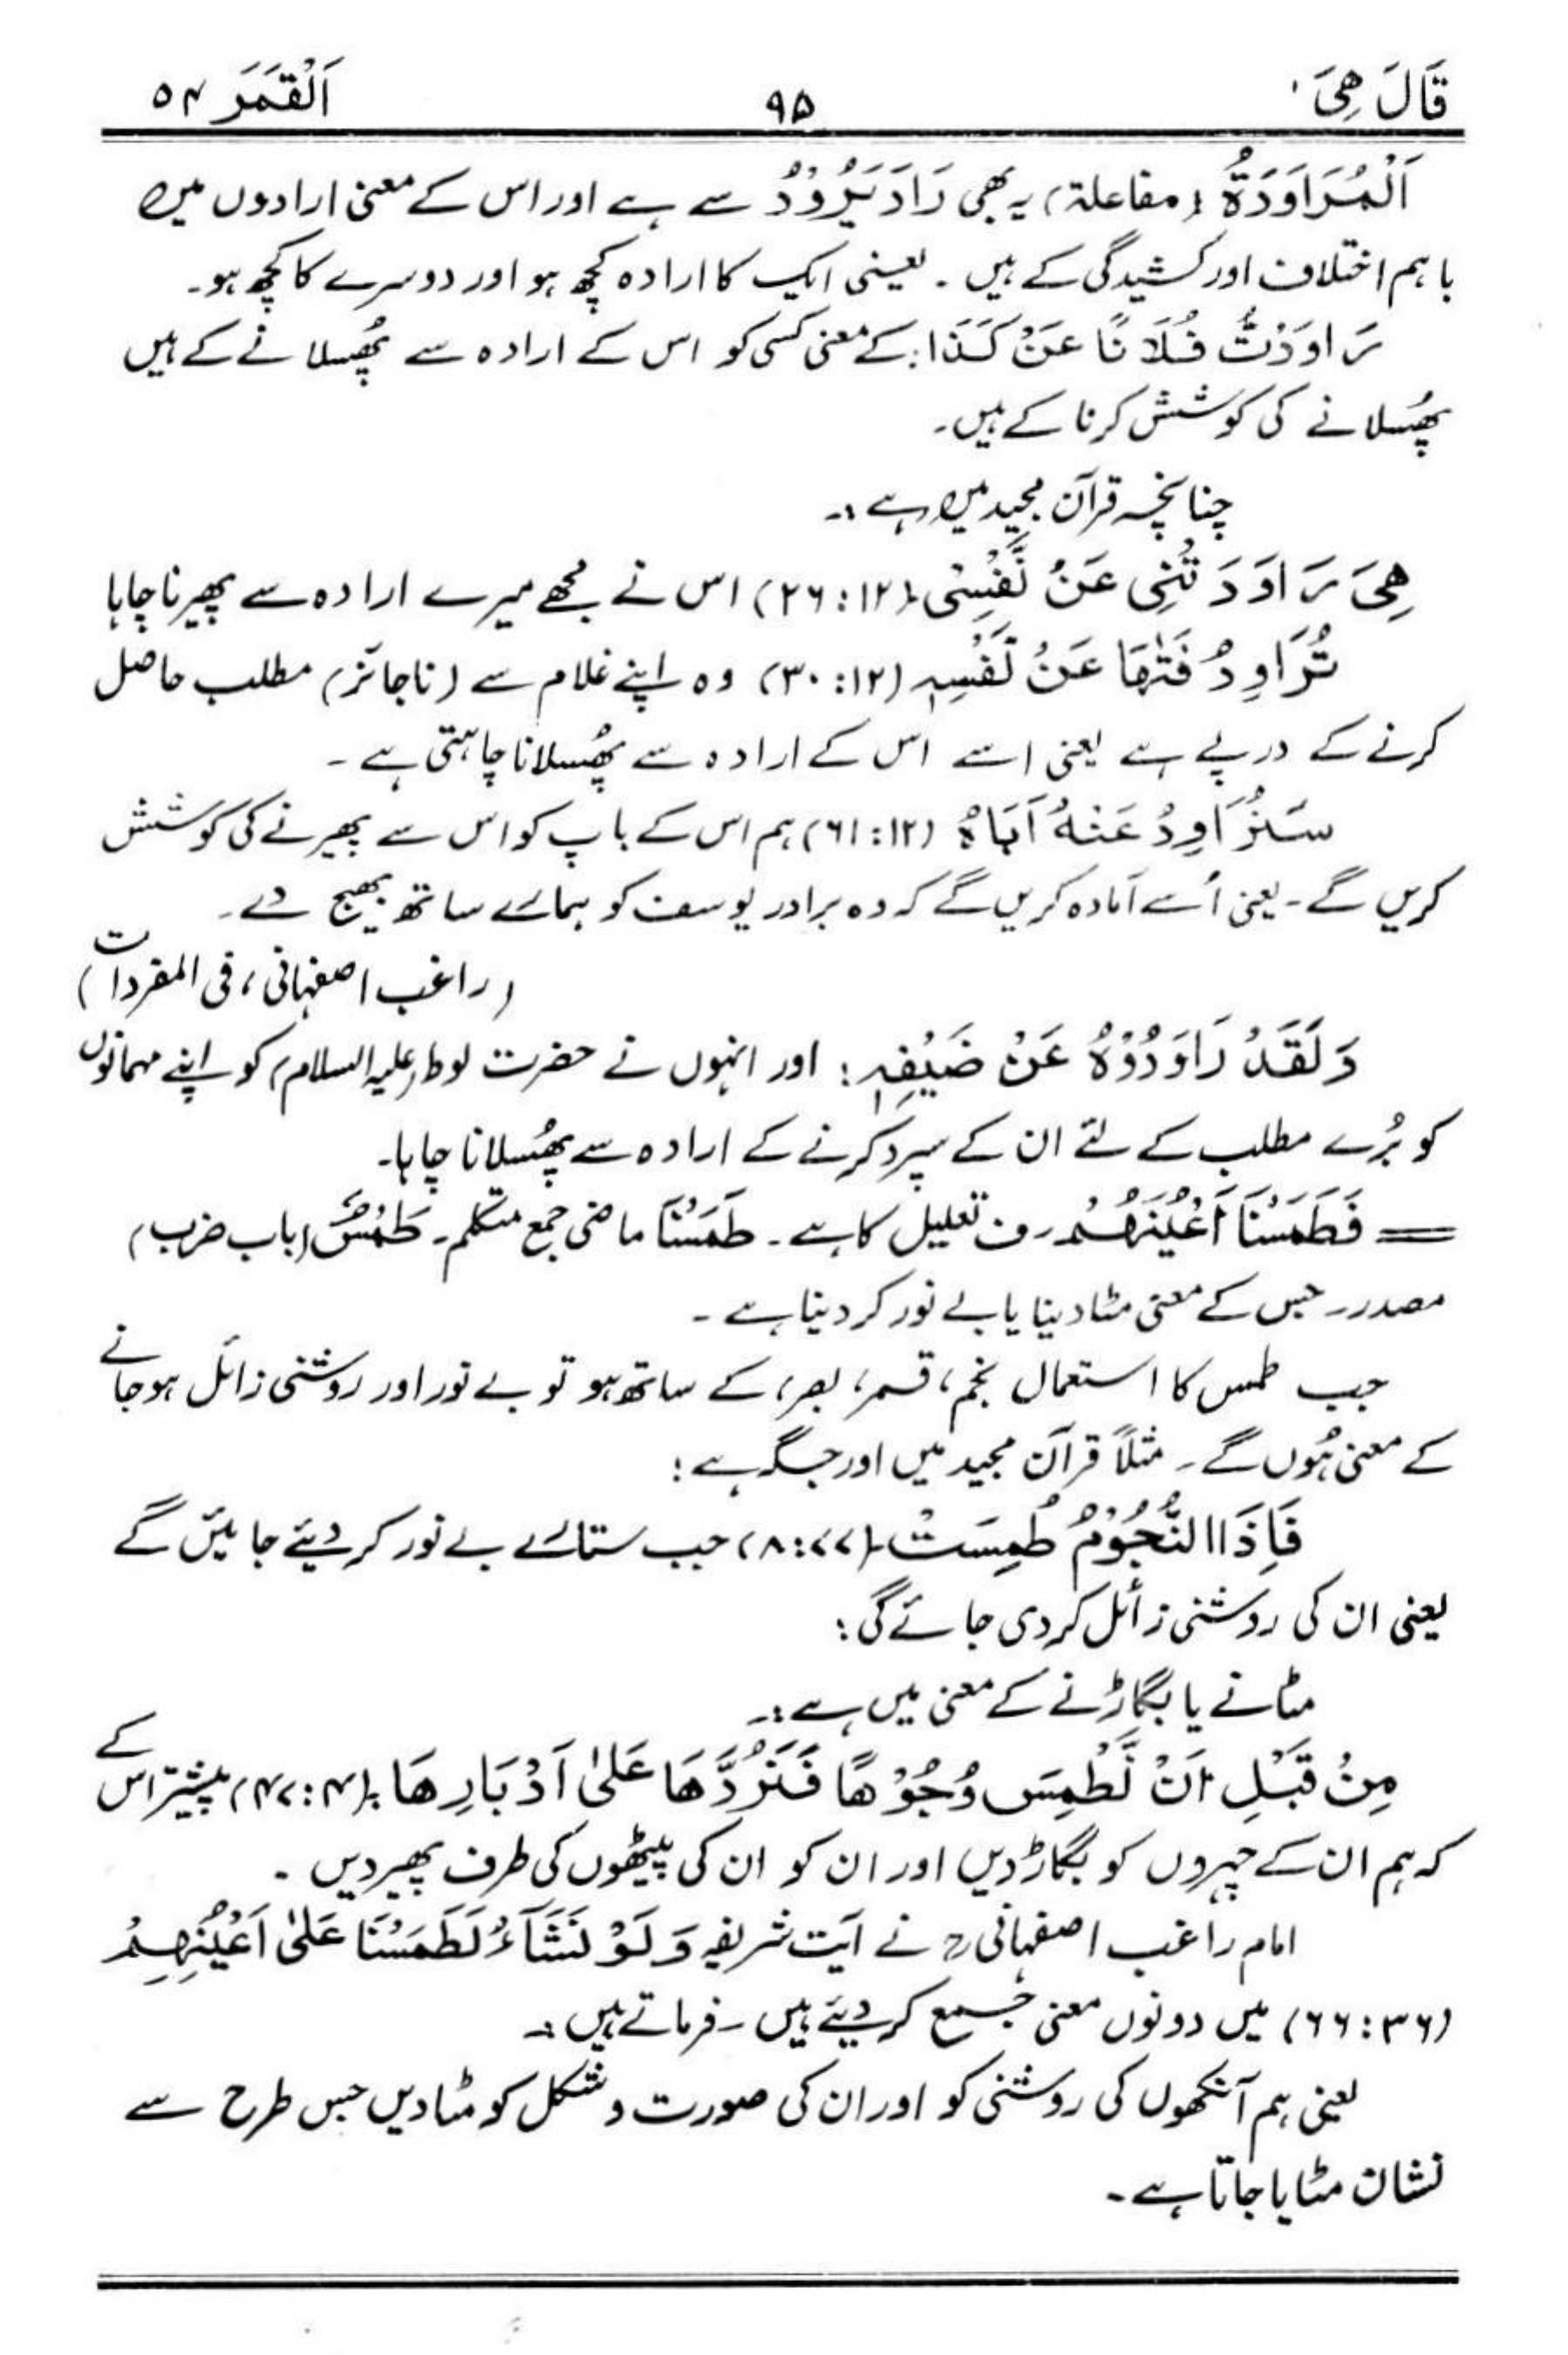 قَالَ هِیَ ۹۵ اَلْقَمَر ۵۴
اَلْمُرَاوَدَۃُ (مفاعلۃ) یہ بھی رَادَ یَرُوْدُ سے ہے اور اس کے معنی ارادوں میں
باہم اختلاف اور کشیدگی کے ہیں ۔ یعنی ایک کا ارادہ کچھ ہو اور دوسرے کا کچھ ہو۔
رَاوَدْتُّ فُلَانًا عَنْ کَذَا: کے معنی کسی کو اس کے ارادہ سے پُھسلانے کے ہیں
پھُسلانے کی کوشش کرنا کے ہیں۔
چنانچہ قرآن مجید میں ہے :۔
هِیَ رَاوَدَتْنِی عَنْ نَّفْسِیْ (۱۲: ۲۶) اس نے مجھے میرے ارادہ سے پھیرنا چاہا
تُرَاوِدُ فَتٰىهَا عَنْ نَّفْسِہٖ (۱۲: ۳۰) وہ اپنے غلام سے (ناجائز) مطلب حاصل
کرنے کے درپے ہے یعنی اسے اس کے ارادہ سے پھُسلانا چاہتی ہے ۔
سَنُرَاوِدُ عَنْهُ اَبَاہُ (۱۲: ۶۱) ہم اس کے باپ کو اس سے پھیرنے کی کوشش
کریں گے ۔ یعنی اُسے آمادہ کریں گے کہ وہ برادر یوسف کو ہمارے ساتھ بھیج دے ۔
(راغب اصفہانی، فی المفردات)
وَلَقَدْ رَاوَدُوْہُ عَنْ ضَیْفِہٖ : اور انہوں نے حضرت لوط (علیہ السلام) کو اپنے مہمانوں
کو بُرے مطلب کے لئے ان کے سپرد کرنے کے ارادہ سے پھُسلانا چاہا۔
= فَطَمَسْنَا اَعْیُنَهُمْ ۔ ف تعلیل کا ہے ۔ طَمَسْنَا ماضی جمع متکلم ۔ طَمْسٌ (باب ضرب)
مصدر ۔ جس کے معنی مٹا دینا یا بے نور کر دینا ہے ۔
جب طمس کا استعمال نجم، قمر، بصر، کے ساتھ ہو تو بے نور اور روشنی زائل ہو جانے
کے معنی ہُوں گے ۔ مثلاً قرآن مجید میں اور جگہ ہے :
فَاِذَا النُّجُوْمُ طُمِسَتْ (۷۷: ۸) جب ستارے بے نور کر دیئے جائیں گے
یعنی ان کی روشنی زائل کر دی جائے گی :
مٹانے یا بگاڑنے کے معنی میں ہے :۔
مِنْ قَبْلِ اَنْ نَّطْمِسَ وُجُوْهًا فَنَرُدَّهَا عَلٰی اَدْبَارِهَا : (۴: ۴۷) پیشتر اس کے
کہ ہم ان کے چہروں کو بگاڑ دیں اور ان کو ان کی پیٹھوں کی طرف پھیر دیں ۔
امام راغب اصفہانی رح نے آیت شریفہ وَلَوْ نَشَآءُ لَطَمَسْنَا عَلٰی اَعْیُنِهِمْ
(۳۶: ۶۶) میں دونوں معنی جمع کر دیئے ہیں ۔ فرماتے ہیں :۔
یعنی ہم آنکھوں کی روشنی کو اور ان کی صورت و شکل کو مٹا دیں جس طرح سے
نشان مٹایا جاتا ہے ۔